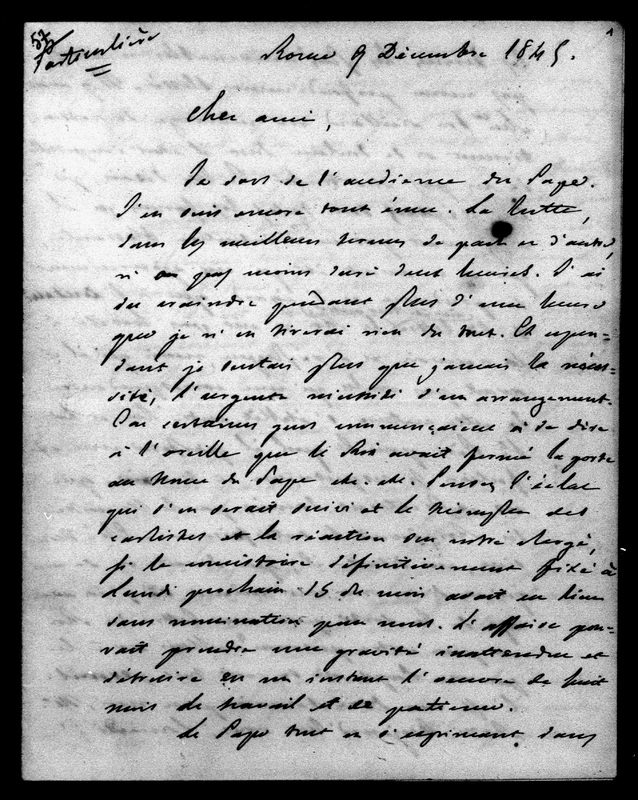 57
Particulière
Rome 9 Décembre 1845.
Cher ami,
Je sors de l'audience du Pape.
J'en suis encore tout ému. La lutte,
dans les meilleurs termes de part et d'autre,
n'a pas moins duré deux heures. J'ai
du craindre pendant plus d'une heure
que je n'en tirerai rien du tout. Et cepen=
dant je sentais plus que jamais la néces=
sité, l'urgente nécessité d'un arrangement.
Car certaines gens commençaient à se dire
à l'oreille que le Roi avait fermé la porte
au Nonce du Pape etc. etc. Pensez l'éclat
qui s'en serait suivi et le triomphe des
carlistes et la réaction sur notre clergé,
si le consistoire définitivement fixé à
Lundi prochain 15 du mois avait eu lieu
sans nomination pour nous. L'affaire pou=
vait prendre une gravité inattendue et
détruire en un instant l'oeuvre de huit
mois de travail et de patience.
Le Pape tout en s'exprimant dans